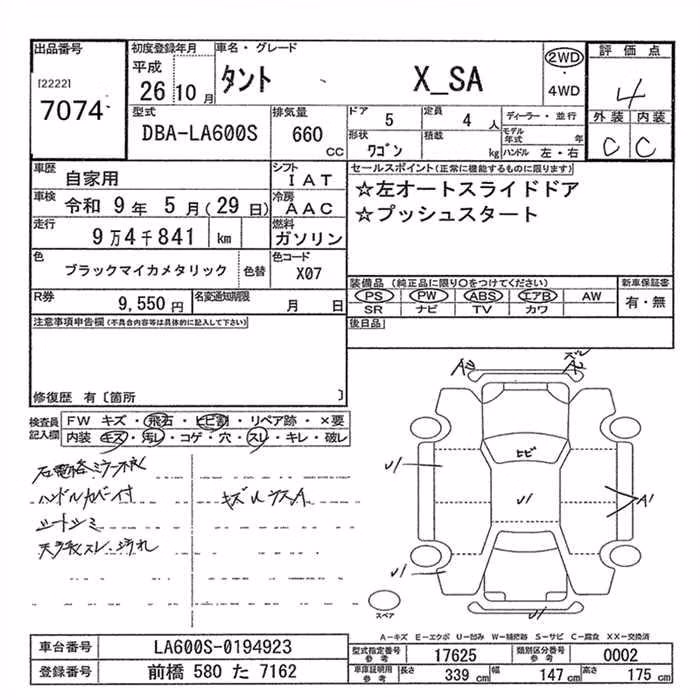 出品番号
[2222]
7074
初度登録年月
平成
26 10 月
車名・グレード
タント X_SA
2WD
・
4WD
評価点
4
外装 内装
C C
型式
DBA-LA600S
排気量
660
CC
ドア
5
定員
4 人
ディーラー・並行
形状
ワゴン
積載
kg
モデル年式 年
ハンドル 左・右
車歴
自家用
シフト
IAT
車検
令和 9年 5月(29日)
冷房
AAC
走行
9万4千841 km
燃料
ガソリン
色
ブラックマイカメタリック
色替
色コード
X07
R券
9,550円
名変通知期限
月 日
セールスポイント(正常に機能するものに限ります)
☆左オートスライドドア
☆プッシュスタート
装備品 (純正品に限り○をつけてください)
PS PW ABS エアB AW
SR ナビ TV カワ
新車保証書
有・無
後日品
注意事項申告欄(不具合内容等は具体的に記入して下さい)
修復歴 有〔箇所 〕
検査員
記入欄
FW キズ・飛石・ヒビ割・リペア跡・×要
内装 キズ・汚レ・コゲ・穴・スレ・キレ・破レ
ハンドルカバー付
シートシミ
キズ
A2
ヒビ
U1
U1
A1
U1
U1
スペア
A-キズ E-エクボ U-凹み W-補修跡 S-サビ C-腐食 XX-交換済
車台番号
LA600S-0194923
登録番号
前橋 580 た 7162
型式指定番号
参考
17625
類別区分番号
参考
0002
車庫証明用
参考
長さ 339 cm
幅 147 cm
高さ 175 cm